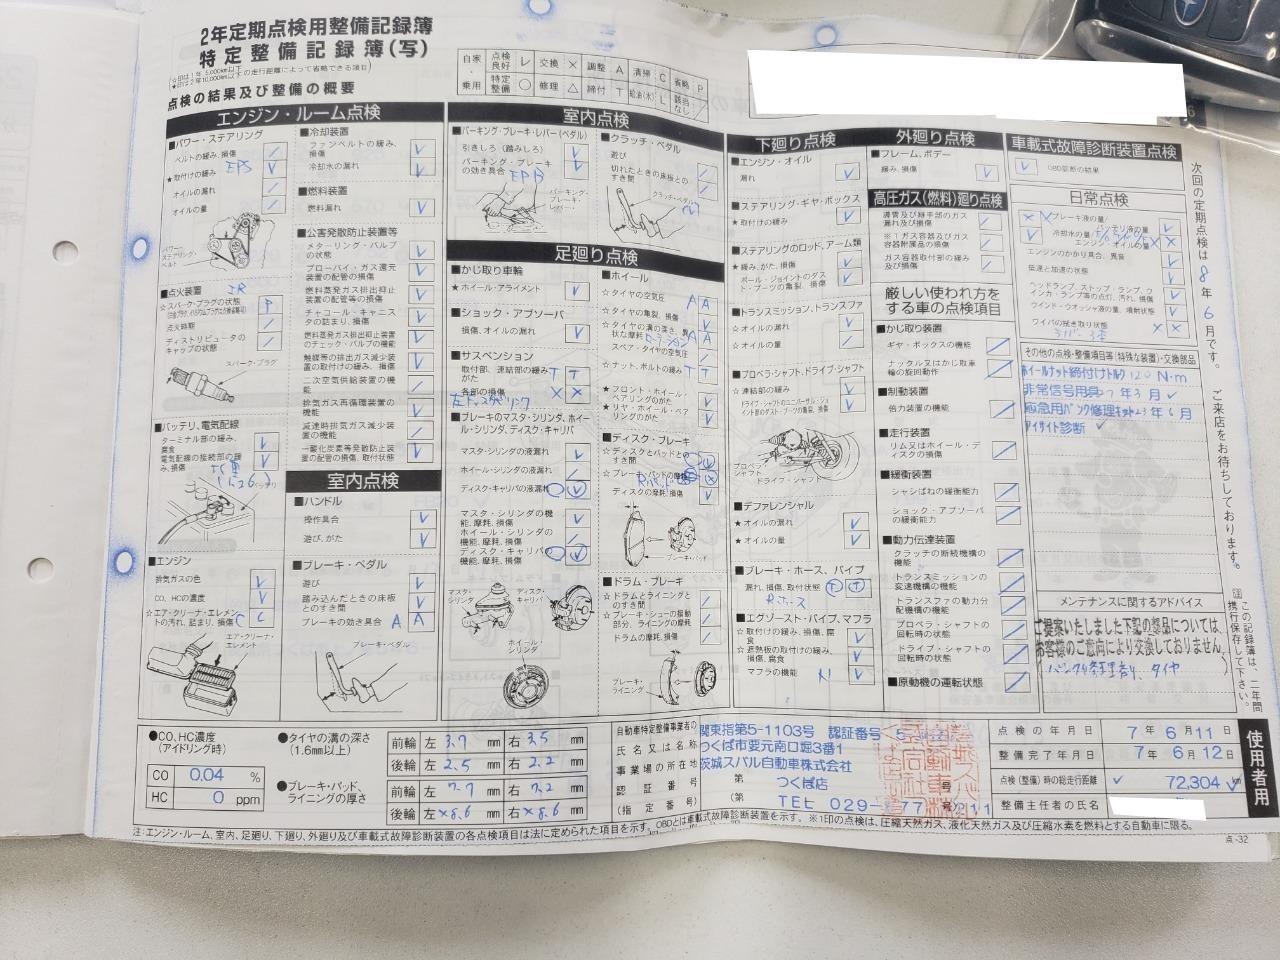 2年定期点検用整備記録簿
特定整備記録簿(写)
点検の結果及び整備の概要
自家・乗用
点検良好 レ 交換 × 調整 A 清掃 C 省略 P
特定整備 ○ 修理 △ 締付 T 給油(水) L 該当なし /
エンジン・ルーム点検
■パワー・ステアリング
ベルトの緩み、損傷
EPS
★取付けの緩み
オイルの漏れ
オイルの量
パワー・ステアリング・ベルト
■点火装置
☆スパーク・プラグの状態
P
点火時期
ディストリビュータのキャップの状態
スパーク・プラグ
■バッテリ、電気配線
ターミナル部の緩み、腐食
電気配線の接続部の緩み、損傷
バッテリ
■エンジン
排気ガスの色
CO、HCの濃度
☆エア・クリーナ・エレメントの汚れ、詰まり、損傷
C
エア・クリーナ・エレメント
■冷却装置
ファンベルトの緩み、損傷
冷却水の漏れ
■燃料装置
燃料漏れ
■公害発散防止装置等
メターリング・バルブの状態
ブローバイ・ガス還元装置の配管の損傷
燃料蒸発ガス排出抑止装置の配管等の損傷
チャコール・キャニスタの詰まり、損傷
燃料蒸発ガス排出抑止装置のチェック・バルブの機能
触媒等の排出ガス減少装置の取付けの緩み、損傷
二次空気供給装置の機能
排気ガス再循環装置の機能
減速時排気ガス減少装置の機能
一酸化炭素等発散防止装置の配管の損傷、取付状態
室内点検
■ハンドル
操作具合
遊び、がた
■ブレーキ・ペダル
遊び
踏み込んだときの床板とのすき間
ブレーキの効き具合
A A
ブレーキ・ペダル
室内点検
■パーキング・ブレーキ・レバー(ペダル)
引きしろ(踏みしろ)
パーキング・ブレーキの効き具合
EPB
パーキング・ブレーキ・レバー
■クラッチ・ペダル
遊び
切れたときの床板とのすき間
クラッチ・ペダル
足廻り点検
■かじ取り車輪
★ホイール・アライメント
■ショック・アブソーバ
損傷、オイルの漏れ
■サスペンション
取付部、連結部の緩みがた
T T
各部の損傷
× ×
■ブレーキのマスタ・シリンダ、ホイール・シリンダ、ディスク・キャリパ
マスタ・シリンダの液漏れ
ホイール・シリンダの液漏れ
ディスク・キャリパの液漏れ
マスタ・シリンダの機能、摩耗、損傷
ホイール・シリンダの機能、摩耗、損傷
ディスク・キャリパの機能、摩耗、損傷
マスタ・シリンダ
ディスク・キャリパ
ホイール・シリンダ
■ホイール
☆タイヤの空気圧
A A
☆タイヤの亀裂、損傷
☆タイヤの溝の深さ、異状な摩耗
ローテーション
スペア・タイヤの空気圧
☆ナット、ボルトの緩み
T T
★フロント・ホイール・ベアリングのがた
★リヤ・ホイール・ベアリングのがた
■ディスク・ブレーキ
☆ディスクとパッドとのすき間
☆ブレーキ・パッドの摩耗
Rパッド
ディスクの摩耗、損傷
ブレーキ・パッド
■ドラム・ブレーキ
☆ドラムとライニングとのすき間
☆ブレーキ・シューの摺動部分、ライニングの摩耗
ドラムの摩耗、損傷
ブレーキ・ライニング
下廻り点検
■エンジン・オイル
漏れ
■ステアリング・ギヤ・ボックス
★取付けの緩み
■ステアリングのロッド、アーム類
★緩み、がた、損傷
ボール・ジョイントのダスト・ブーツの亀裂、損傷
■トランスミッション、トランスファ
☆オイルの漏れ
☆オイルの量
■プロペラ・シャフト、ドライブ・シャフト
☆連結部の緩み
ドライブ・シャフトのユニバーサル・ジョイント部のダスト・ブーツの亀裂、損傷
プロペラ・シャフト
ドライブ・シャフト
■デファレンシャル
★オイルの漏れ
★オイルの量
■ブレーキ・ホース、パイプ
漏れ、損傷、取付状態
T T
Rホース
■エグゾースト・パイプ、マフラ
☆取付けの緩み、損傷、腐食
☆遮熱板の取付けの緩み、損傷、腐食
マフラの機能
外廻り点検
■フレーム、ボデー
緩み、損傷
高圧ガス(燃料)廻り点検
導管及び継手部のガス漏れ及び損傷
※1ガス容器及びガス容器附属品の損傷
ガス容器取付部の緩み及び損傷
厳しい使われ方をする車の点検項目
■かじ取り装置
ギヤ・ボックスの機能
ナックル又はかじ取車輪の旋回動作
■制動装置
倍力装置の機能
■走行装置
リム又はホイール・ディスクの損傷
■緩衝装置
シャシばねの緩衝能力
ショック・アブソーバの緩衝能力
■動力伝達装置
クラッチの断続機構の機能
トランスミッションの変速機構の機能
トランスファの動力分配機構の機能
プロペラ・シャフトの回転時の状態
ドライブ・シャフトの回転時の状態
■原動機の運転状態
車載式故障診断装置点検
OBD診断の結果
日常点検
ブレーキ液の量
冷却水の量
バッテリ液の量
エンジン・オイルの量
エンジンのかかり具合、異音
低速と加速の状態
ヘッドランプ、ストップ・ランプ、ウインカ・ランプ等の点灯、汚れ、損傷
ウインド・ウォッシャ液の量、噴射状態
ワイパの拭き取り状態
その他の点検・整備項目等(特殊な装置)・交換部品
ホイールナット締付けトルク120 N・m
非常信用具 27年3月 レ
応急用パンク修理キット23年6月
アイサイト診断 レ
メンテナンスに関するアドバイス
ご提案いたしました下記の部品については、
お客様のご意向により交換しておりません。
パンク修理キット、タイヤ
次回の定期点検は 8年 6月です。 ご来店をお待ちしております。
この記録簿は、二年間携行保存して下さい。
使用者用
●CO、HC濃度(アイドリング時)
CO 0.04 %
HC 0 ppm
●タイヤの溝の深さ(1.6mm以上)
前輪 左 3.7 mm 右 3.5 mm
後輪 左 2.5 mm 右 2.2 mm
●ブレーキ・パッド、ライニングの厚さ
前輪 左 7.7 mm 右 7.2 mm
後輪 左 ×8.6 mm 右 ×8.6 mm
自動車特定整備事業者の氏名又は名称
事業場の所在地
認証番号
(指定番号)
関東指第5-1103号 認証番号
つくば市要元南口堀3番1
茨城スバル自動車株式会社
つくば店
TEL 029-
点検の年月日 7年 6月 11日
整備完了年月日 7年 6月 12日
点検(整備)時の総走行距離 72,304 km
整備主任者の氏名
注:エンジン・ルーム、室内、足廻り、下廻り、外廻り及び車載式故障診断装置の各点検項目は法に定められた項目を示す。OBDとは車載式故障診断装置を示す。※1印の点検は、圧縮天然ガス、液化天然ガス及び圧縮水素を燃料とする自動車に限る。
点-32